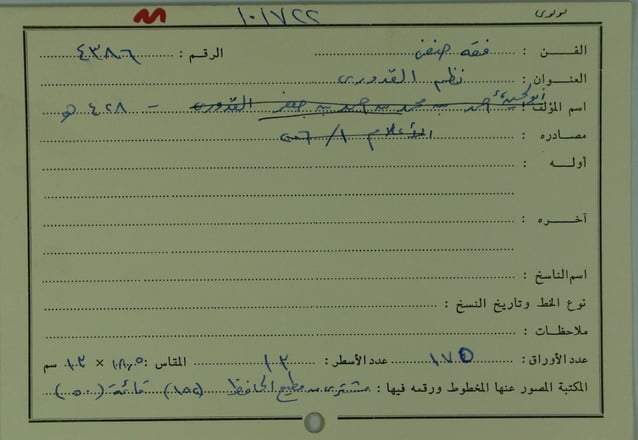 لولوى
١٠١٧٢٢
الفن : فقه حنفي الرقم : ٤٣٨٦
العنوان : نظم القدوري
اسم المؤلف : أحمد بن محمد بن أحمد بن جعفر القدوري - ٤٢٨ هـ
مصادره : الأعلام ١/
أولـه :
آخـره :
اسم الناسخ :
نوع الخط وتاريخ النسخ :
ملاحظات :
عدد الأوراق : ١٧٥ عدد الأسطر : ١٣ المقاس : ١٨,٥ × ١٣ سم
المكتبة المصور عنها المخطوط ورقمه فيها : مشترى من مطيع الحافظ قائمة (٥٠)